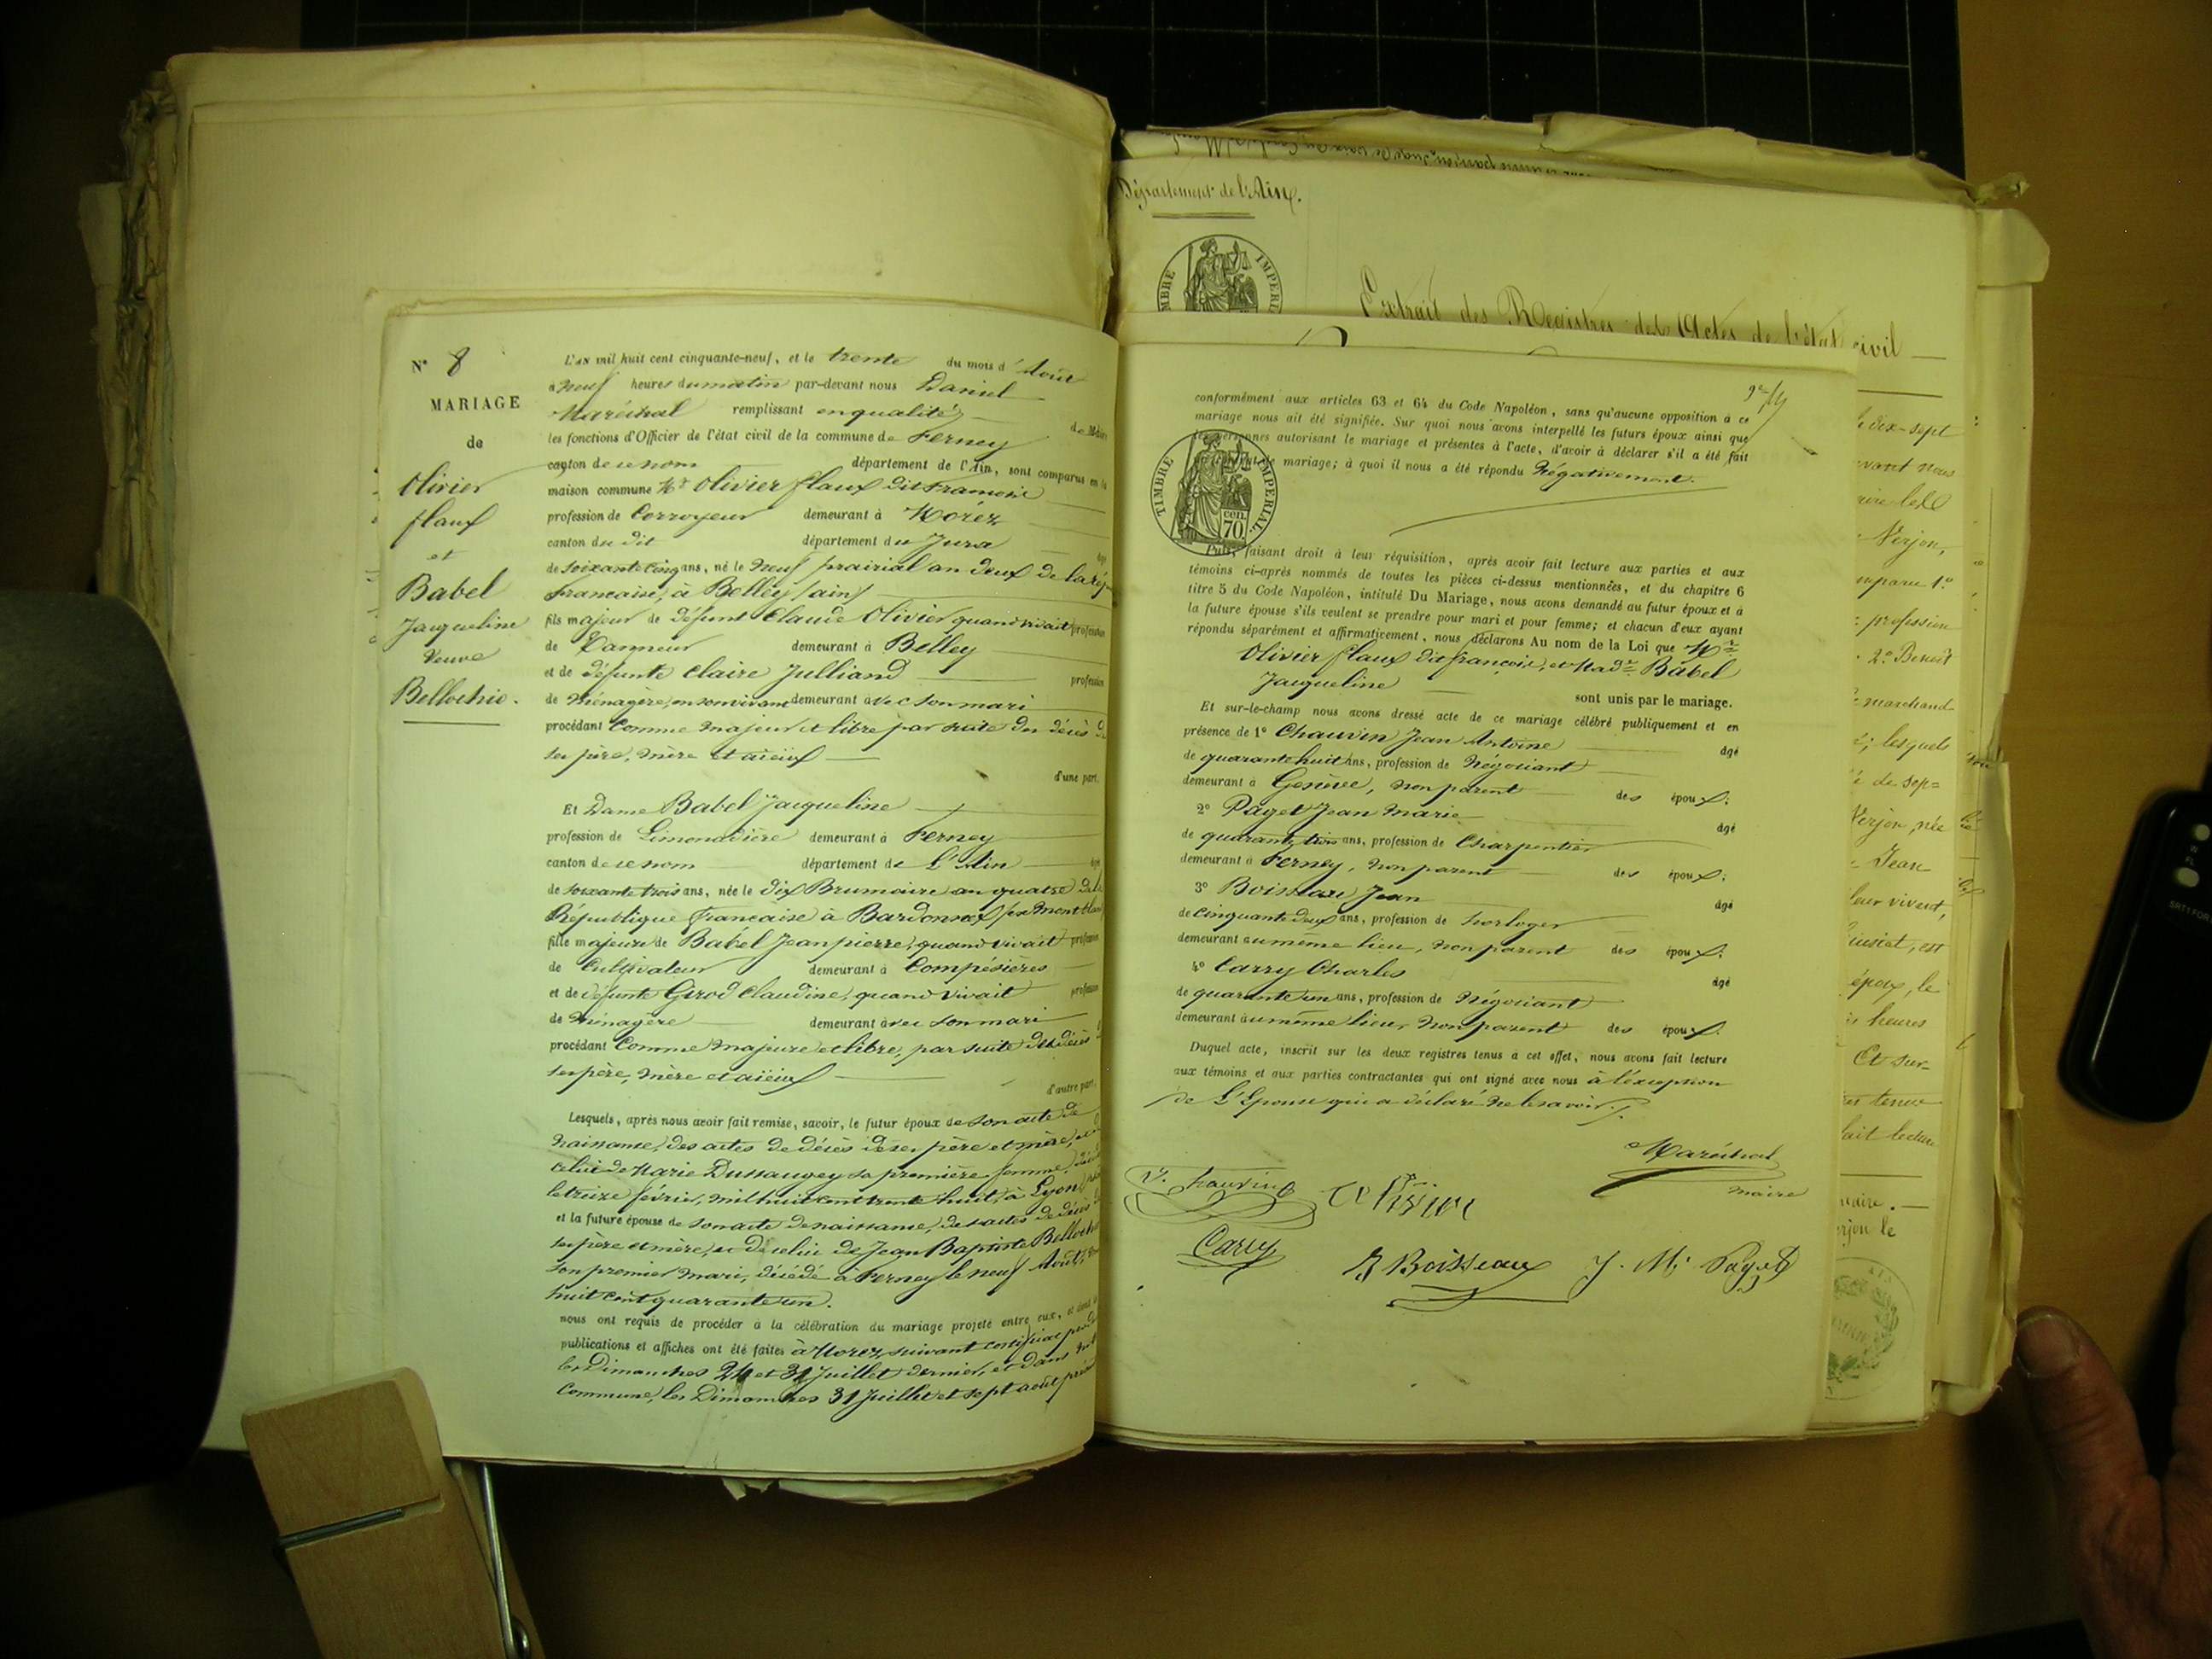 N° 8
MARIAGE
de
Olivier
flaux
et
Babel
Jacqueline
Veuve
Bellochio.
L'AN mil huit cent cinquante-neuf, et le trente du mois d'Août
à neuf heures du matin par-devant nous Daniel
Maréchal remplissant en qualité de Maire
les fonctions d'Officier de l'état civil de la commune de Ferney
canton de ce nom département de l'Ain, sont comparus en la
maison commune Mr Olivier flaux dit francois
profession de Corroyeur demeurant à Morez
canton du dit département du Jura âgé
de soixante cinq ans, né le neuf prairial an deux de la
francaise, à Belley (ain)
fils majeur de défunt Claude Olivier quand vivait profession
de Tanneur demeurant à Belley
et de défunte Claire Julliand profession
de ménagère, en son vivant demeurant avec son mari
procédant Comme majeur et libre par suite du décès de
ses père, mère et aïeux
d'une part.
Et Dame Babel Jacqueline
profession de Limonadière demeurant à Ferney
canton de ce nom département de L'Ain âgé
de soixante trois ans, née le dix Brumaire an quatre de la
République francaise à Bardonnex
fille majeure de Babel Jean pierre, quand vivait profession
de Cultivateur demeurant à Compésières
et de défunte Girod Claudine, quand vivait profession
de ménagère demeurant avec son mari
procédant Comme majeure et libre, par suite des décès de
ses père, mère et aïeux
d'autre part.
Lesquels, après nous avoir fait remise, savoir, le futur époux de son acte de
naissance, des actes de décès de ses père et mère, et
celui de Marie Dussaugey sa première femme,
le treize février, mil huit cent trente huit, à Lyon
et la future épouse de son acte de naissance, des actes de décès de
ses père et mère, et de celui de Jean Baptiste
son premier mari, décédé à Ferney le neuf Août,
huit cent quarante un.
nous ont requis de procéder à la célébration du mariage projeté entre eux, et dont les
publications et affiches ont été faites à Morez, suivant certificat
les Dimanches 24 et 31 Juillet dernier, et dans
Commune, les Dimanches 31 Juillet et sept août
Département de l'Ain.
TIMBRE IMPERIAL
Extrait des Registres des Actes de l'état civil
conformément aux articles 63 et 64 du Code Napoléon, sans qu'aucune opposition à ce
mariage nous ait été signifiée. Sur quoi nous avons interpellé les futurs époux ainsi que
les personnes autorisant le mariage et présentes à l'acte, d'avoir à déclarer s'il a été fait
de mariage; à quoi il nous a été répondu Négativement.
TIMBRE IMPERIAL
cen.
70
Puis, faisant droit à leur réquisition, après avoir fait lecture aux parties et aux
témoins ci-après nommés de toutes les pièces ci-dessus mentionnées, et du chapitre 6
titre 5 du Code Napoléon, intitulé Du Mariage, nous avons demandé au futur époux et à
la future épouse s'ils veulent se prendre pour mari et pour femme; et chacun d'eux ayant
répondu séparément et affirmativement, nous déclarons Au nom de la Loi que Mr
Olivier flaux dit françois, et Made Babel
Jacqueline sont unis par le mariage.
Et sur-le-champ nous avons dressé acte de ce mariage célébré publiquement et en
présence de 1° Chauvin Jean Antoine âgé
de quarante huit ans, profession de Négociant
demeurant à Genève, non parent des époux;
2° Paget Jean Marie âgé
de quarante trois ans, profession de Charpentier
demeurant à Ferney, non parent des époux;
3° Boisseau Jean âgé
de cinquante deux ans, profession de horloger
demeurant au même lieu, non parent des époux;
4° Carry Charles âgé
de quarante un ans, profession de Négociant
demeurant au même lieu, non parent des époux.
Duquel acte, inscrit sur les deux registres tenus à cet effet, nous avons fait lecture
aux témoins et aux parties contractantes qui ont signé avec nous à l'éxception
de L'Epouse qui a déclaré ne le savoir.
Maréchal
maire
Chauvin
Carry
Boisseau
J. M. Paget
dix-sept
Verjon,
comparu 1°
profession
2° Benoît
marchand
lesquels
de sep=
Verjon, née
Jean
leur vivent,
est
époux, le
heures
Et sur=
tenue
fait lecture
maire.